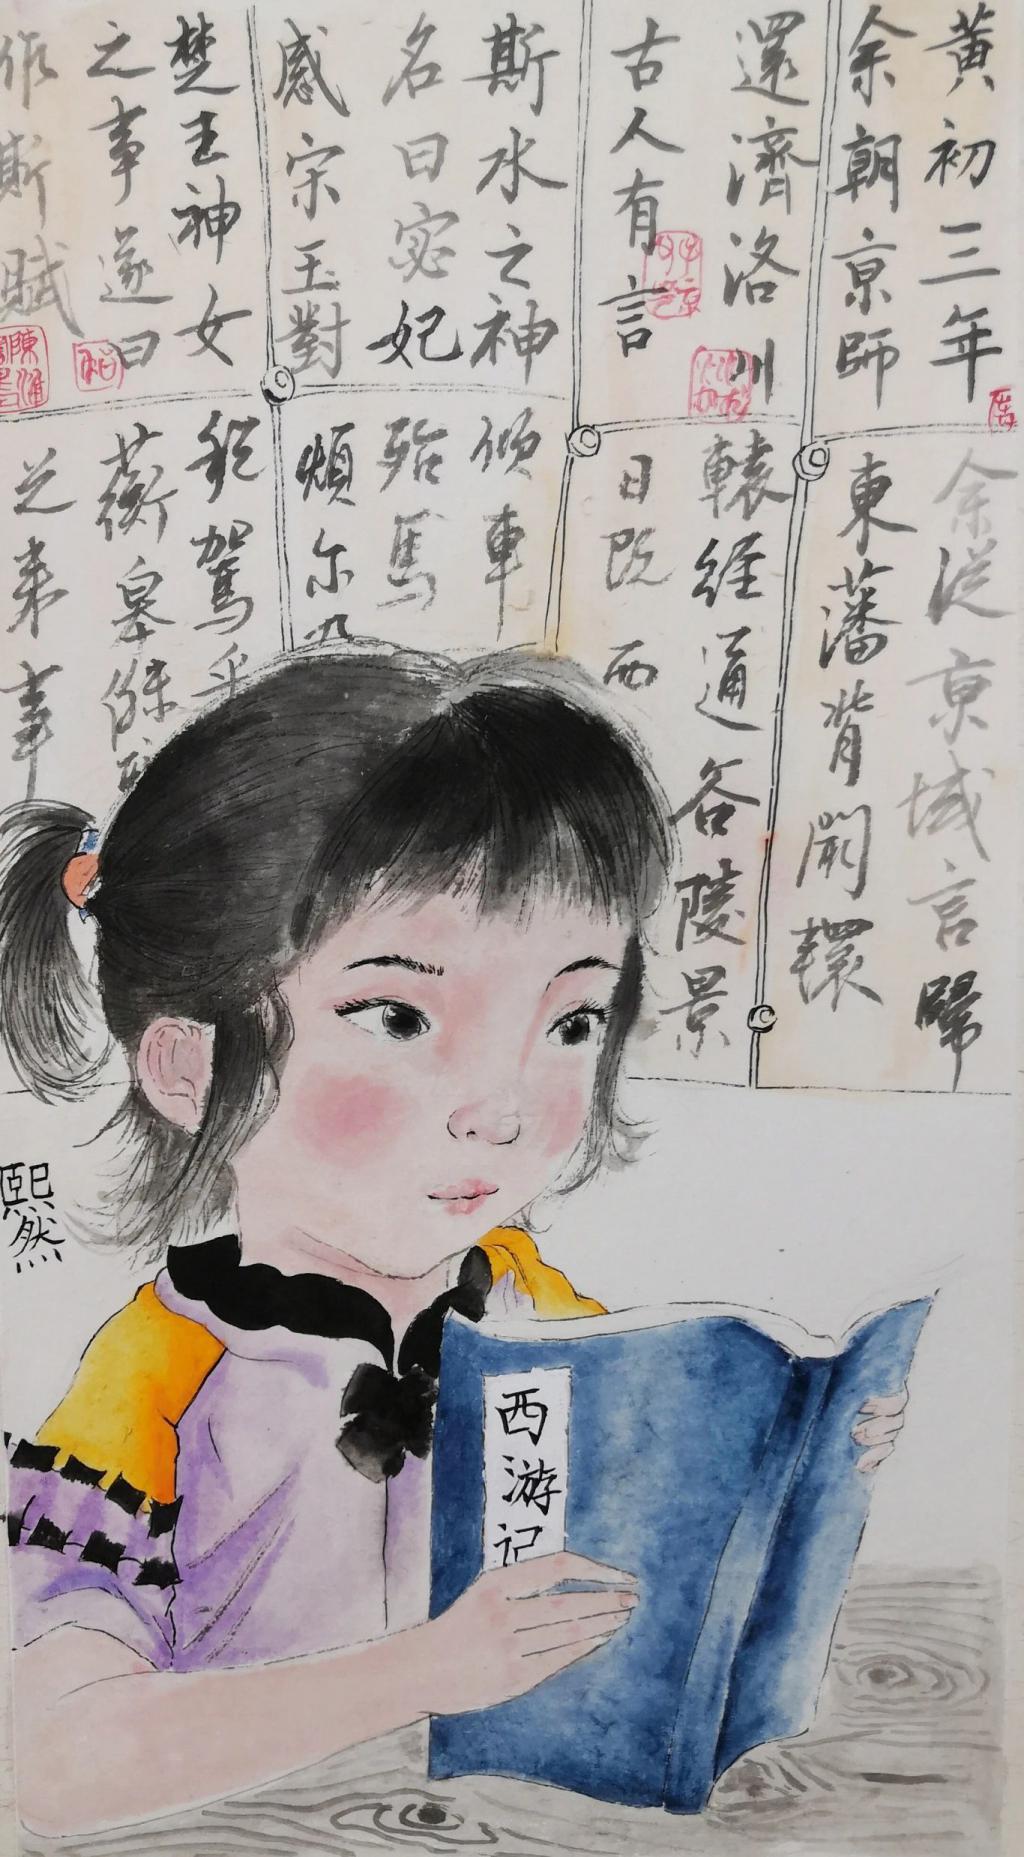 黄初三年
余朝京師
還濟洛川
古人有言
斯水之神
名曰宓妃
感宋玉對
楚王神女
之事遂曰
作斯賦
余従京域言歸
東藩背闕轘
轅經通谷陵景
日既西
傾車
殆馬
煩尔乃
税駕乎
蘅皋
之來事
熙然
西游记